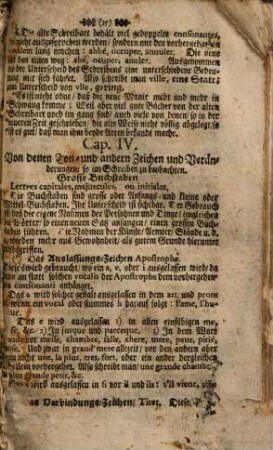 Die alte Schreibart behält viel gedoppelte consonantes,
nicht ausgesprochen werden/ sondern nur den vorhergehenden
lang machen: abbé, occuper, annuler. Die neue
den einen weg: abé, ocuper, anuler. Ausgenommen
der Unterscheid des Schreibens eine unterschiedene Bedeu-
mit sich führet. Also schreibt man ville, eine Stadt;
zum Unterscheid von vile, gering.
Es ist nicht ohne/ daß die neue Manir mehr und mehr in
Schwang komme; Weil aber viel gute Bücher von der alten
Schreibart noch im gang sind/ auch viele von denen/ so in der
neuern Zeit geschrieben/ die alte Weise nicht völlig abgelegt, so
ist es gut/ daß man ihm beyde Arten bekandt mache.
Cap. IV.
Von denen Ton- und andern Zeichen und Verän-
derungen/ so im Schreiben zu beobachten.
Grosse Buchstaben
Lettres capitales, majuscules, ou initiales,
Die Buchstaben sind grosse oder Anfangs- und kleine oder
Mittel-Buchstaben. Ihr Unterscheid ist sichtbar. Der Gebrauch
ist/ daß die eigene Nahmen der Persohnen und Dinge/ ingleichen
die Wörter/ so einen neuen Satz anfangen/ einen grossen Buch-
staben führen. Die Nahmen der Künste/ Aemter/ Stände u. d. g.
werden mehr aus Gewohnheit/ als gutem Grunde hierunter
mitbegriffen.
Das Auslassungs-Zeichen Apostrophe.
Dieses wird gebraucht/ wo ein a, e, oder i ausgelassen wird/ da
an statt solchen vocalis der Apostrophe dem vorhergehen-
den consonanti anhänget.
Das a wird solcher gestalt ausgelassen in dem art. und pron.
wenn ein vocal oder stummes h darauf folgt: l'ame, l'hu-
meur.
Das e wird ausgelassen 1) in allen einsilbigen me,
se, &c. 2) In jusque und parceque, 3) In dem Wort
grande vor messe, chambre, salle, chere, mere, peur, pitié,
Und zwar in grand' mere allezeit/ vor den andern aber
nicht une, la plus, tres, fort, oder ein ander dergleichen
vorhergehet. Also schreibt man/ une grande chambre,
plus grande peur, &c.
Das i wird ausgelassen in si vor il und ils: s'il vient,
Das Verbindungs-Zeichen, Tiret. Dieses